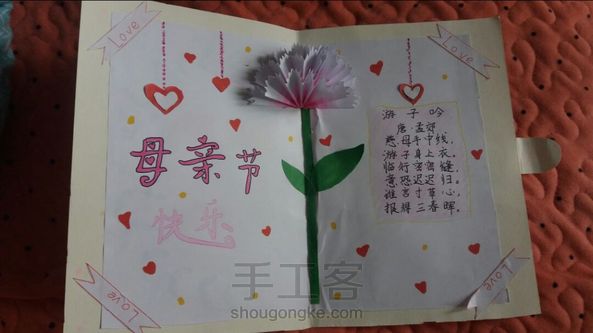 Love
Love
母亲节
快乐
游子吟
唐·孟郊
慈母手中线,
游子身上衣。
临行密密缝,
意恐迟迟归。
谁言寸草心,
报得三春晖。
Love
Love
手工客
shougongke.com